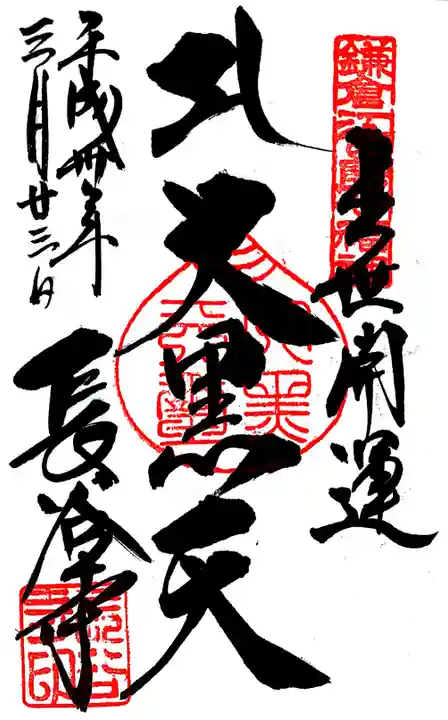 鎌倉江
出世開運
大黒天
平成卅年
三月廿三日
長谷寺